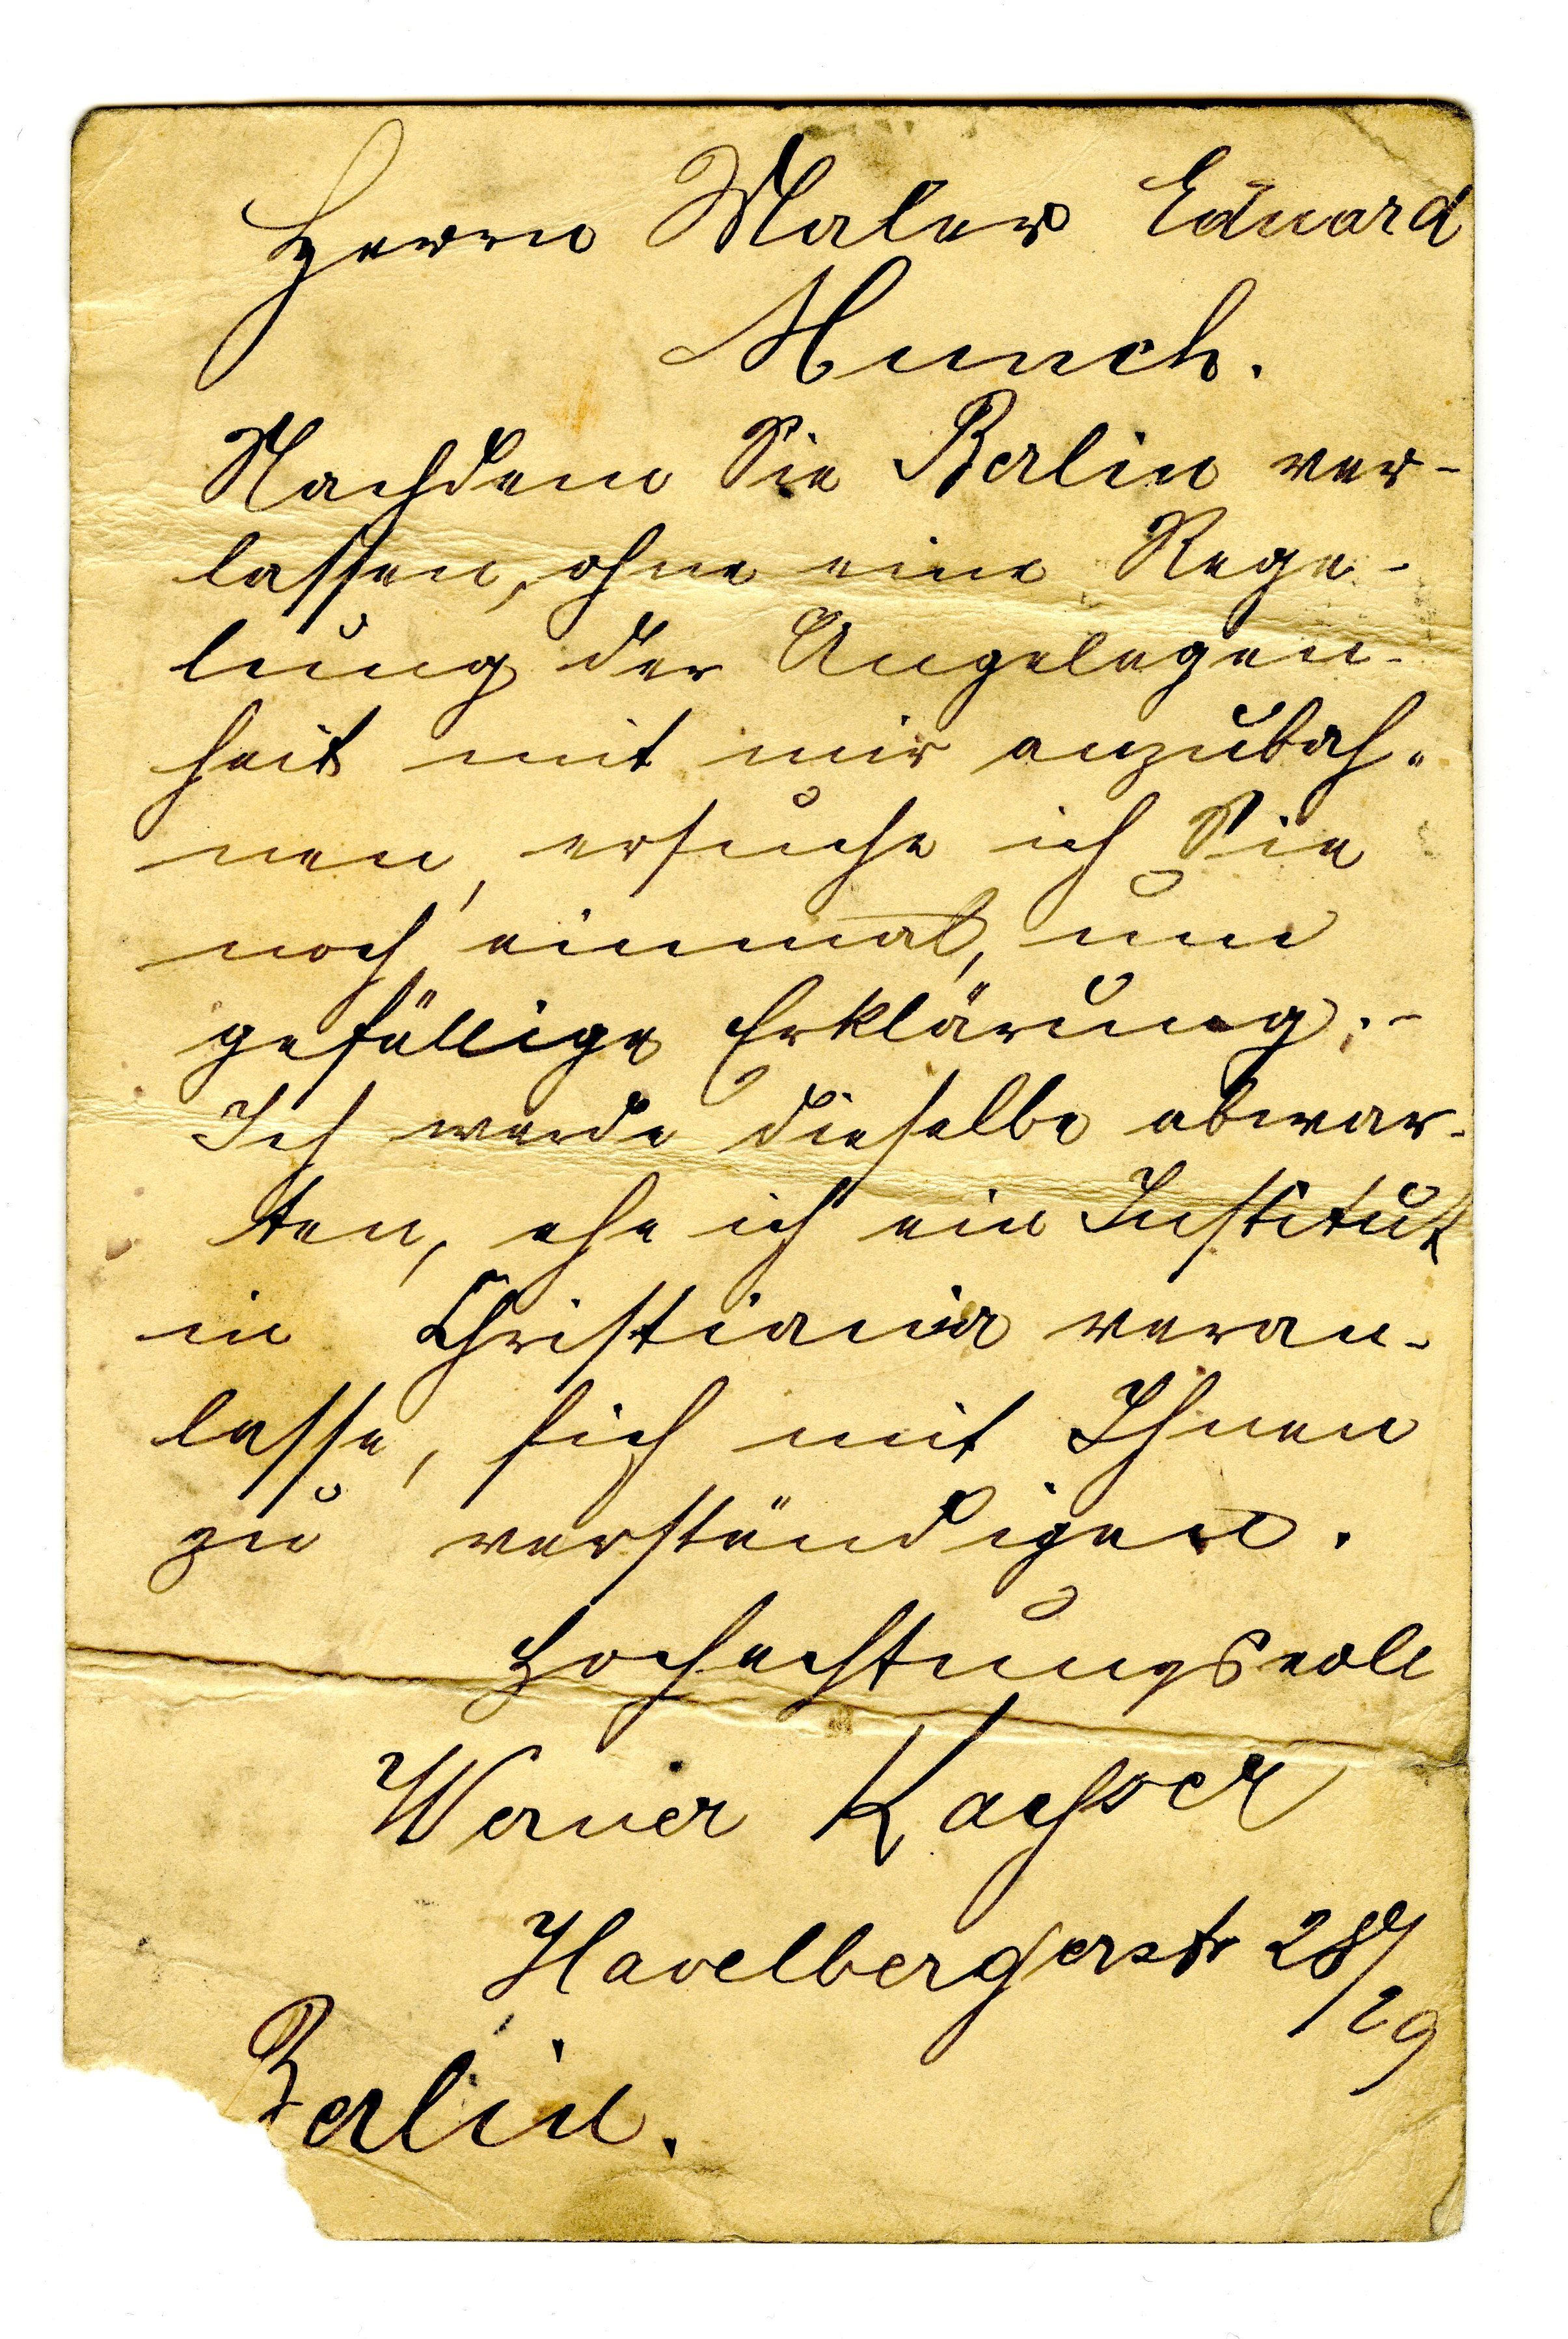 Herrn Maler Eduard
Munch.
Nachdem Sie Berlin ver-
lassen, ohne eine Rege-
lung der Angelegen-
heit mit mir anzubah-
nen, ersuche ich Sie
noch einmal, um
gefällige Erklärung.-
Ich werde dieselbe abwar-
ten, ehe ich ein Institut
in Christiania veran-
lasse, sich mit Ihnen
zu verständigen.
Hochachtungsvoll
Werner
Havelbergerstr 28/29
Berlin.